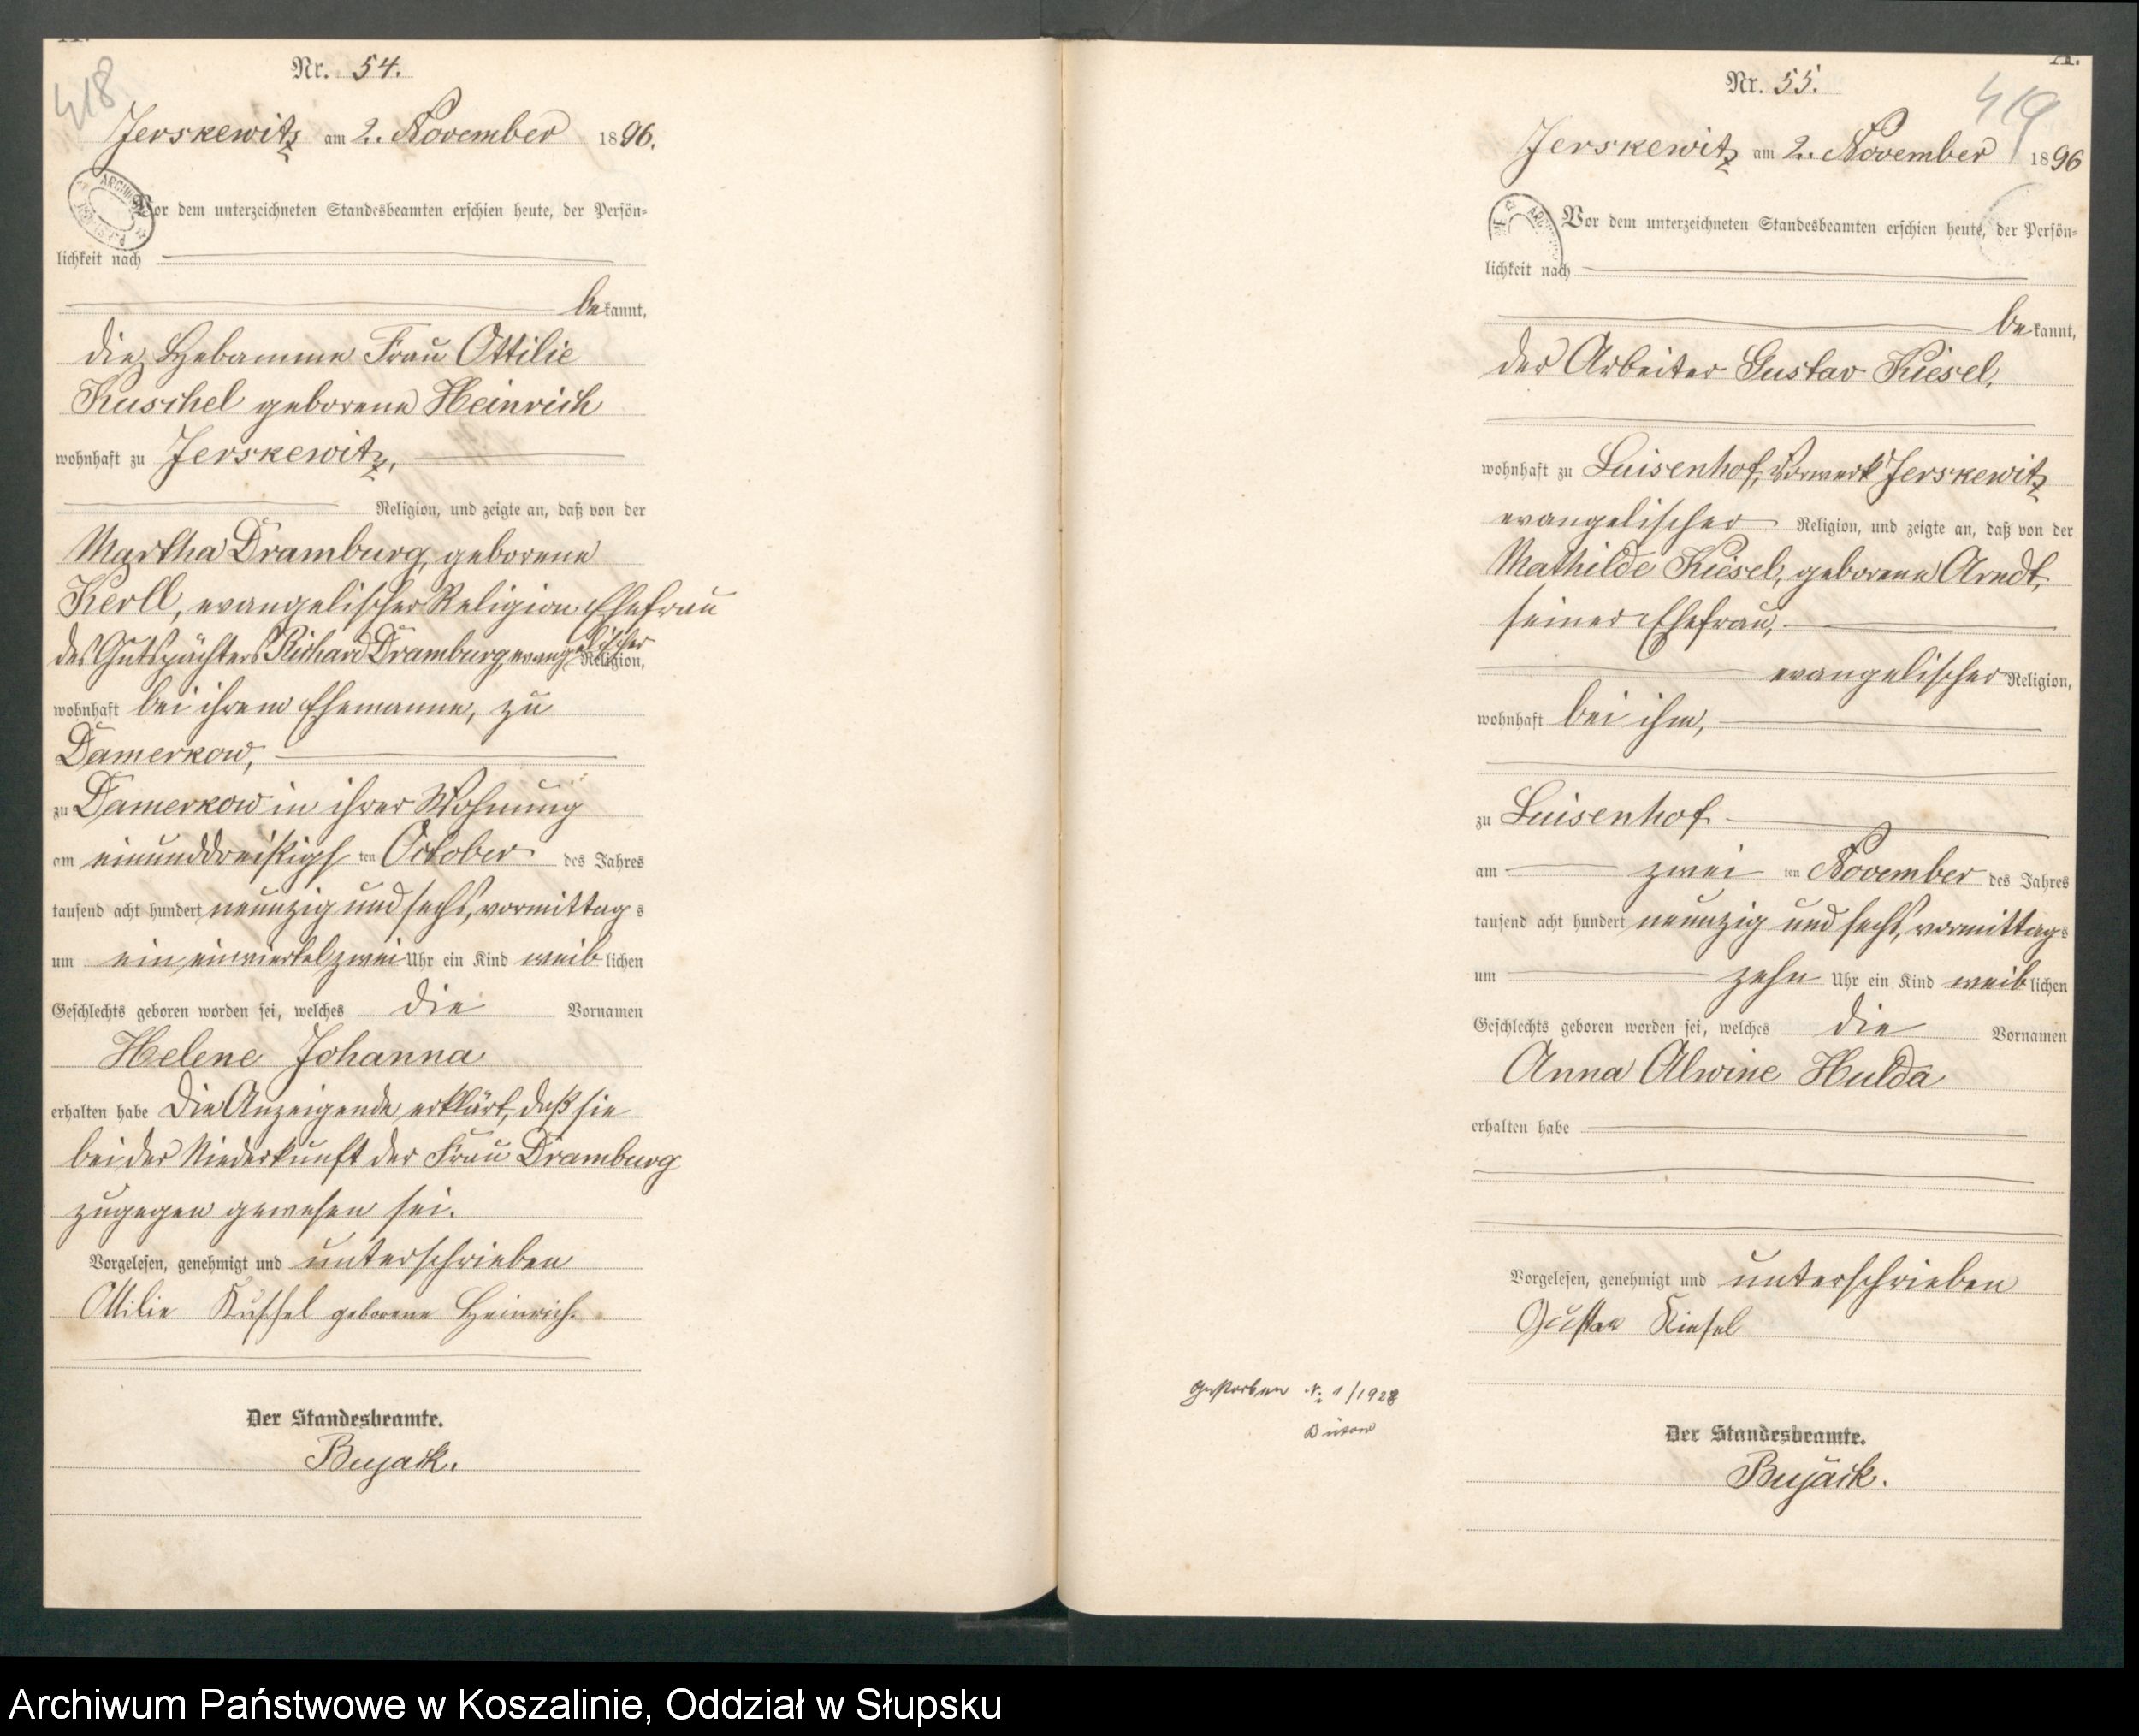 418
Nr. 54.
Jerskewitz am 2. November 1896.
Vor dem unterzeichneten Standesbeamten erschien heute, der Persön=
lichkeit nach
bekannt,
die Hebamme Frau Ottilie
Kuschel geborene Heinrich
wohnhaft zu Jerskewitz,
Religion, und zeigte an, daß von der
Martha Dramburg, geborene
Kerll, evangelischer Religion Ehefrau
des Gutspächters Richard Dramburg, evangelischer
Religion,
wohnhaft bei ihrem Ehemanne, zu
Damerkow,
zu Damerkow in ihrer Wohnung
am einunddreißigsten October des Jahres
tausend acht hundert neunzig und sechs, vormittags
um ein einviertel zwei Uhr ein Kind weiblichen
Geschlechts geboren worden sei, welches die Vornamen
Helene Johanna
erhalten habe Die Anzeigende erklärt, daß sie
bei der Niederkunft der Frau Dramburg
zugegen gewesen sei.
Vorgelesen, genehmigt und unterschrieben
Ottilie Kuschel geborene Heinrich.
Der Standesbeamte.
Bujack.
A.
419
Nr. 55.
Jerskewitz am 2. November 1896
Vor dem unterzeichneten Standesbeamten erschien heute, der Persön=
lichkeit nach
bekannt,
der Arbeiter Gustav Kiesel,
wohnhaft zu Luisenhof, Vorwerk Jerskewitz
evangelischer Religion, und zeigte an, daß von der
Mathilde Kiesel, geborene Arndt,
seiner Ehefrau,
evangelischer Religion,
wohnhaft bei ihm,
zu Luisenhof
am zweiten November des Jahres
tausend acht hundert neunzig und sechs, vormittags
um zehn Uhr ein Kind weiblichen
Geschlechts geboren worden sei, welches die Vornamen
Anna Alwine Hulda
erhalten habe
Vorgelesen, genehmigt und unterschrieben
Gustav Kiesel
Gestorben Nr. 1/1928
Bütow
Der Standesbeamte.
Bujack.
Archiwum Państwowe w Koszalinie, Oddział w Słupsku